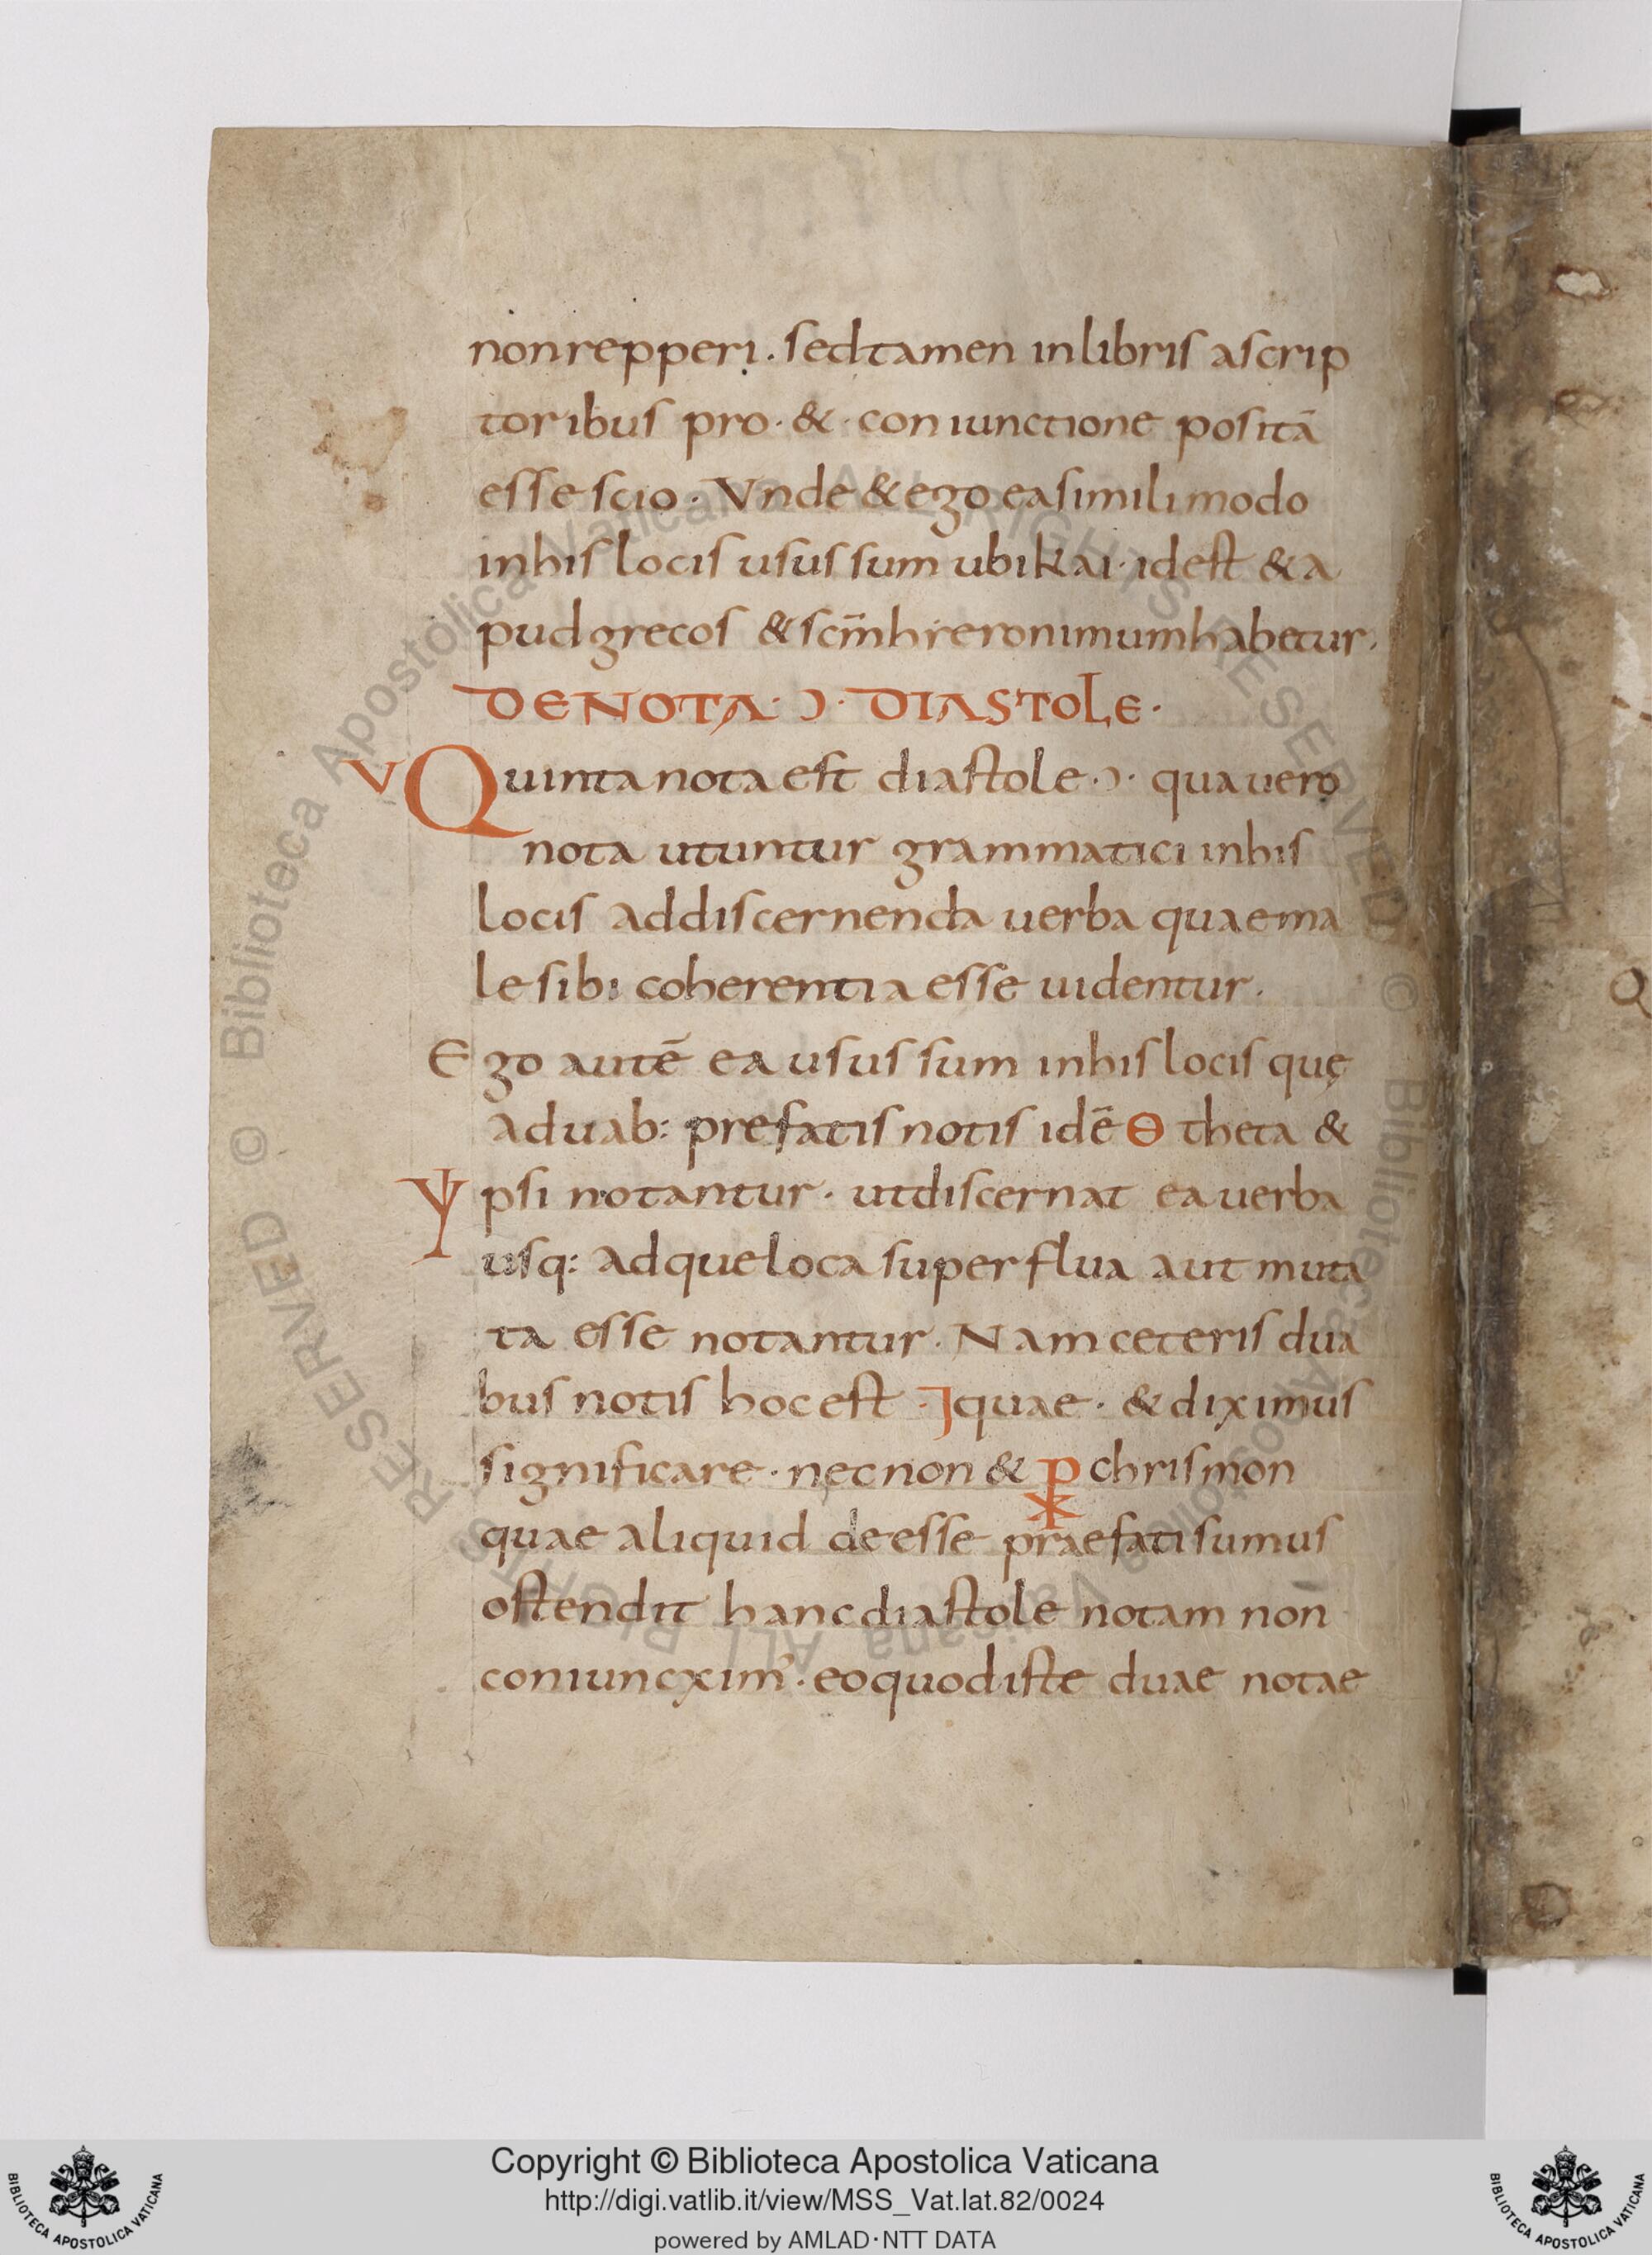 non repperi. sed tamen in libris a scrip
toribus pro · & · coniunctione positā
esse scio · Vnde & ego ea simili modo
in his locis usus sum ubi kai · id est & a
pud grecos & scm̄ hieronimum habetur ·
DE NOTA · Ͻ · DIASTOLE ·
V Quinta nota est diastole · ͻ · qua vero
nota utuntur grammatici in his
locis ad discernenda uerba quae ma
le sibi coherentia esse uidentur ·
Ego autē ea usus sum in his locis quę
a duab: prefatis notis idē Θ theta &
Ψ psi notantur · ut discernat ea uerba
usq: ad que loca superflua aut muta
ta esse notantur · Nam ceteris dua
bus notis hoc est · J quae · & diximus
significare · nec non & ⳩ chrismon
quae aliquid deesse praefati sumus
ostendit hanc diastole notam nōn
coniuncxim' · eo quod iste duae notae
Copyright © Biblioteca Apostolica Vaticana
http://digi.vatlib.it/view/MSS_Vat.lat.82/0024
powered by AMLAD·NTT DATA
BIBLIOTECA APOSTOLICA VATICANA
BIBLIOTECA APOSTOLICA VATICANA
© Biblioteca Apostolica Vaticana ALL RIGHTS RESERVED © Biblioteca Apostolica Vaticana ALL RIGHTS RESERVED